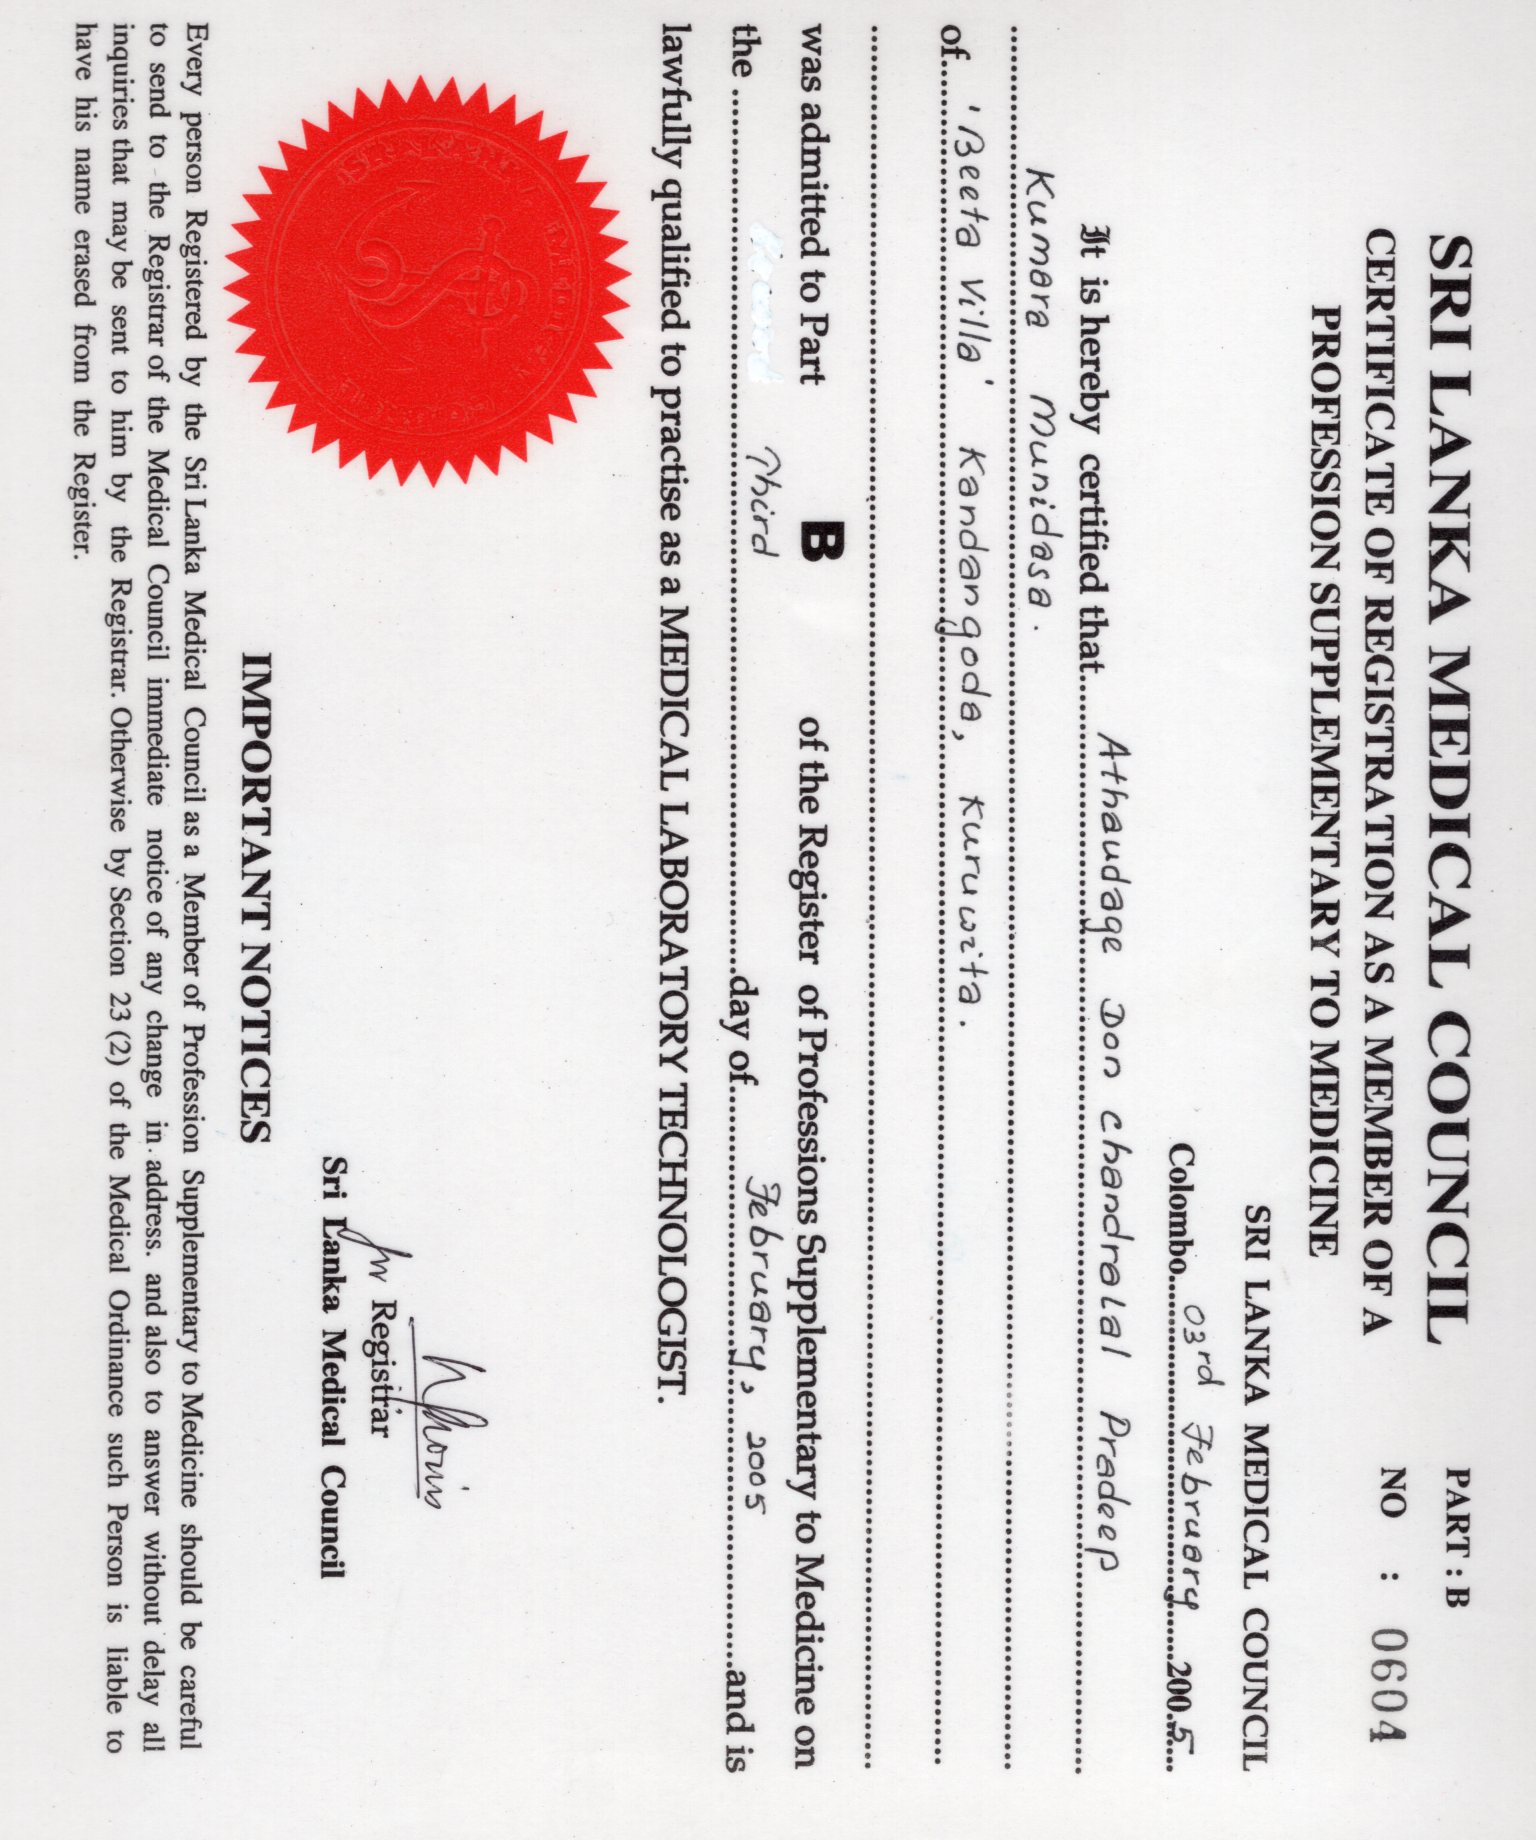 SRI LANKA MEDICAL COUNCIL
CERTIFICATE OF REGISTRATION AS A MEMBER OF A
PROFESSION SUPPLEMENTARY TO MEDICINE
PART : B
NO : 0604
SRI LANKA MEDICAL COUNCIL
Colombo 03rd February 2005
It is hereby certified that Athaudage Don Chandralal Pradeep
Kumara Munidasa.
of 'Beeta Villa' Kandangoda, Kuruwita.
was admitted to Part B of the Register of Professions Supplementary to Medicine on
the Third day of February, 2005 and is
lawfully qualified to practise as a MEDICAL LABORATORY TECHNOLOGIST.
for Registrar
Sri Lanka Medical Council
IMPORTANT NOTICES
Every person Registered by the Sri Lanka Medical Council as a Member of Profession Supplementary to Medicine should be careful
to send to the Registrar of the Medical Council immediate notice of any change in address. and also to answer without delay all
inquiries that may be sent to him by the Registrar. Otherwise by Section 23 (2) of the Medical Ordinance such Person is liable to
have his name erased from the Register.